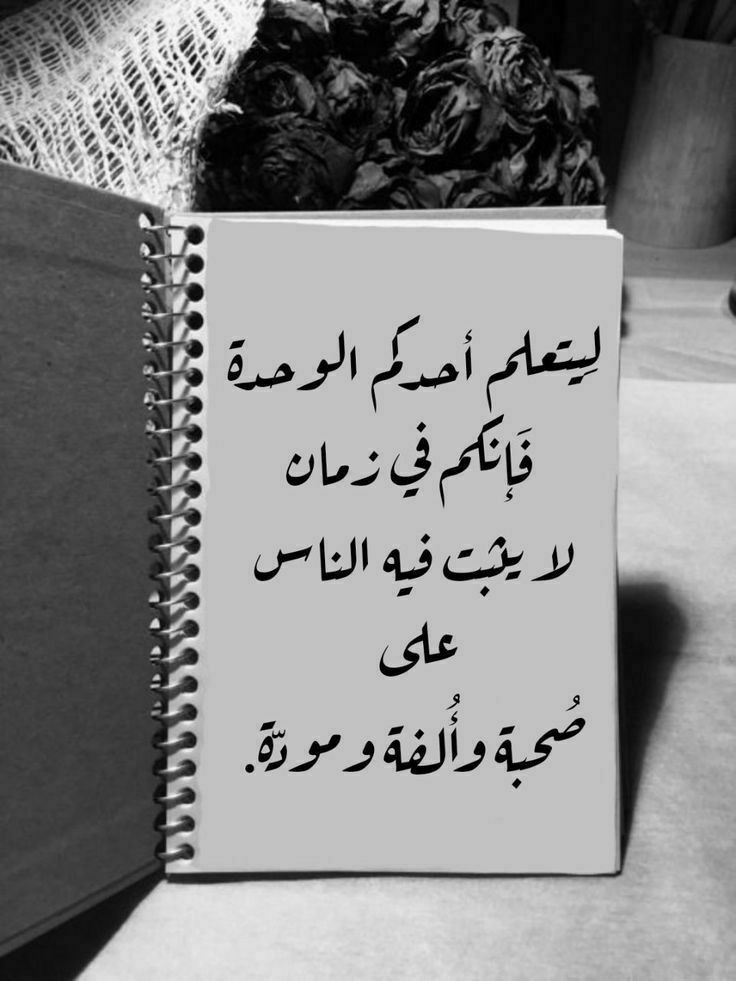 لِيتعلم أحدكم الوحدة
فَإنكم في زمان
لا يثبت فيه الناس
على
صُحبة وأُلفة و مودّة.